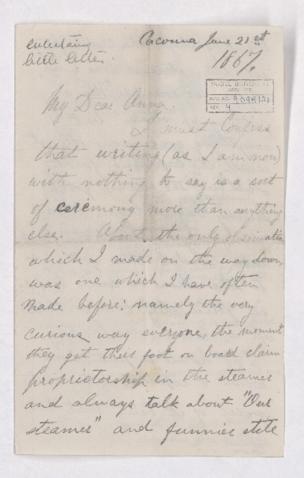 entertaing
little letter.
Cacouna June 21st
1867.
My Dear Anna
I must confess
that writing (as I am now)
with nothing to say is a sort
of ceremony more than anything
else. About the only observation
which I made on the way down
was one which I have often
made before; namely the very
curious way everyone, the moment
they get their foot on board claim
proprietorship in the steamer
and always talk about "Our
steamer" and funnier still